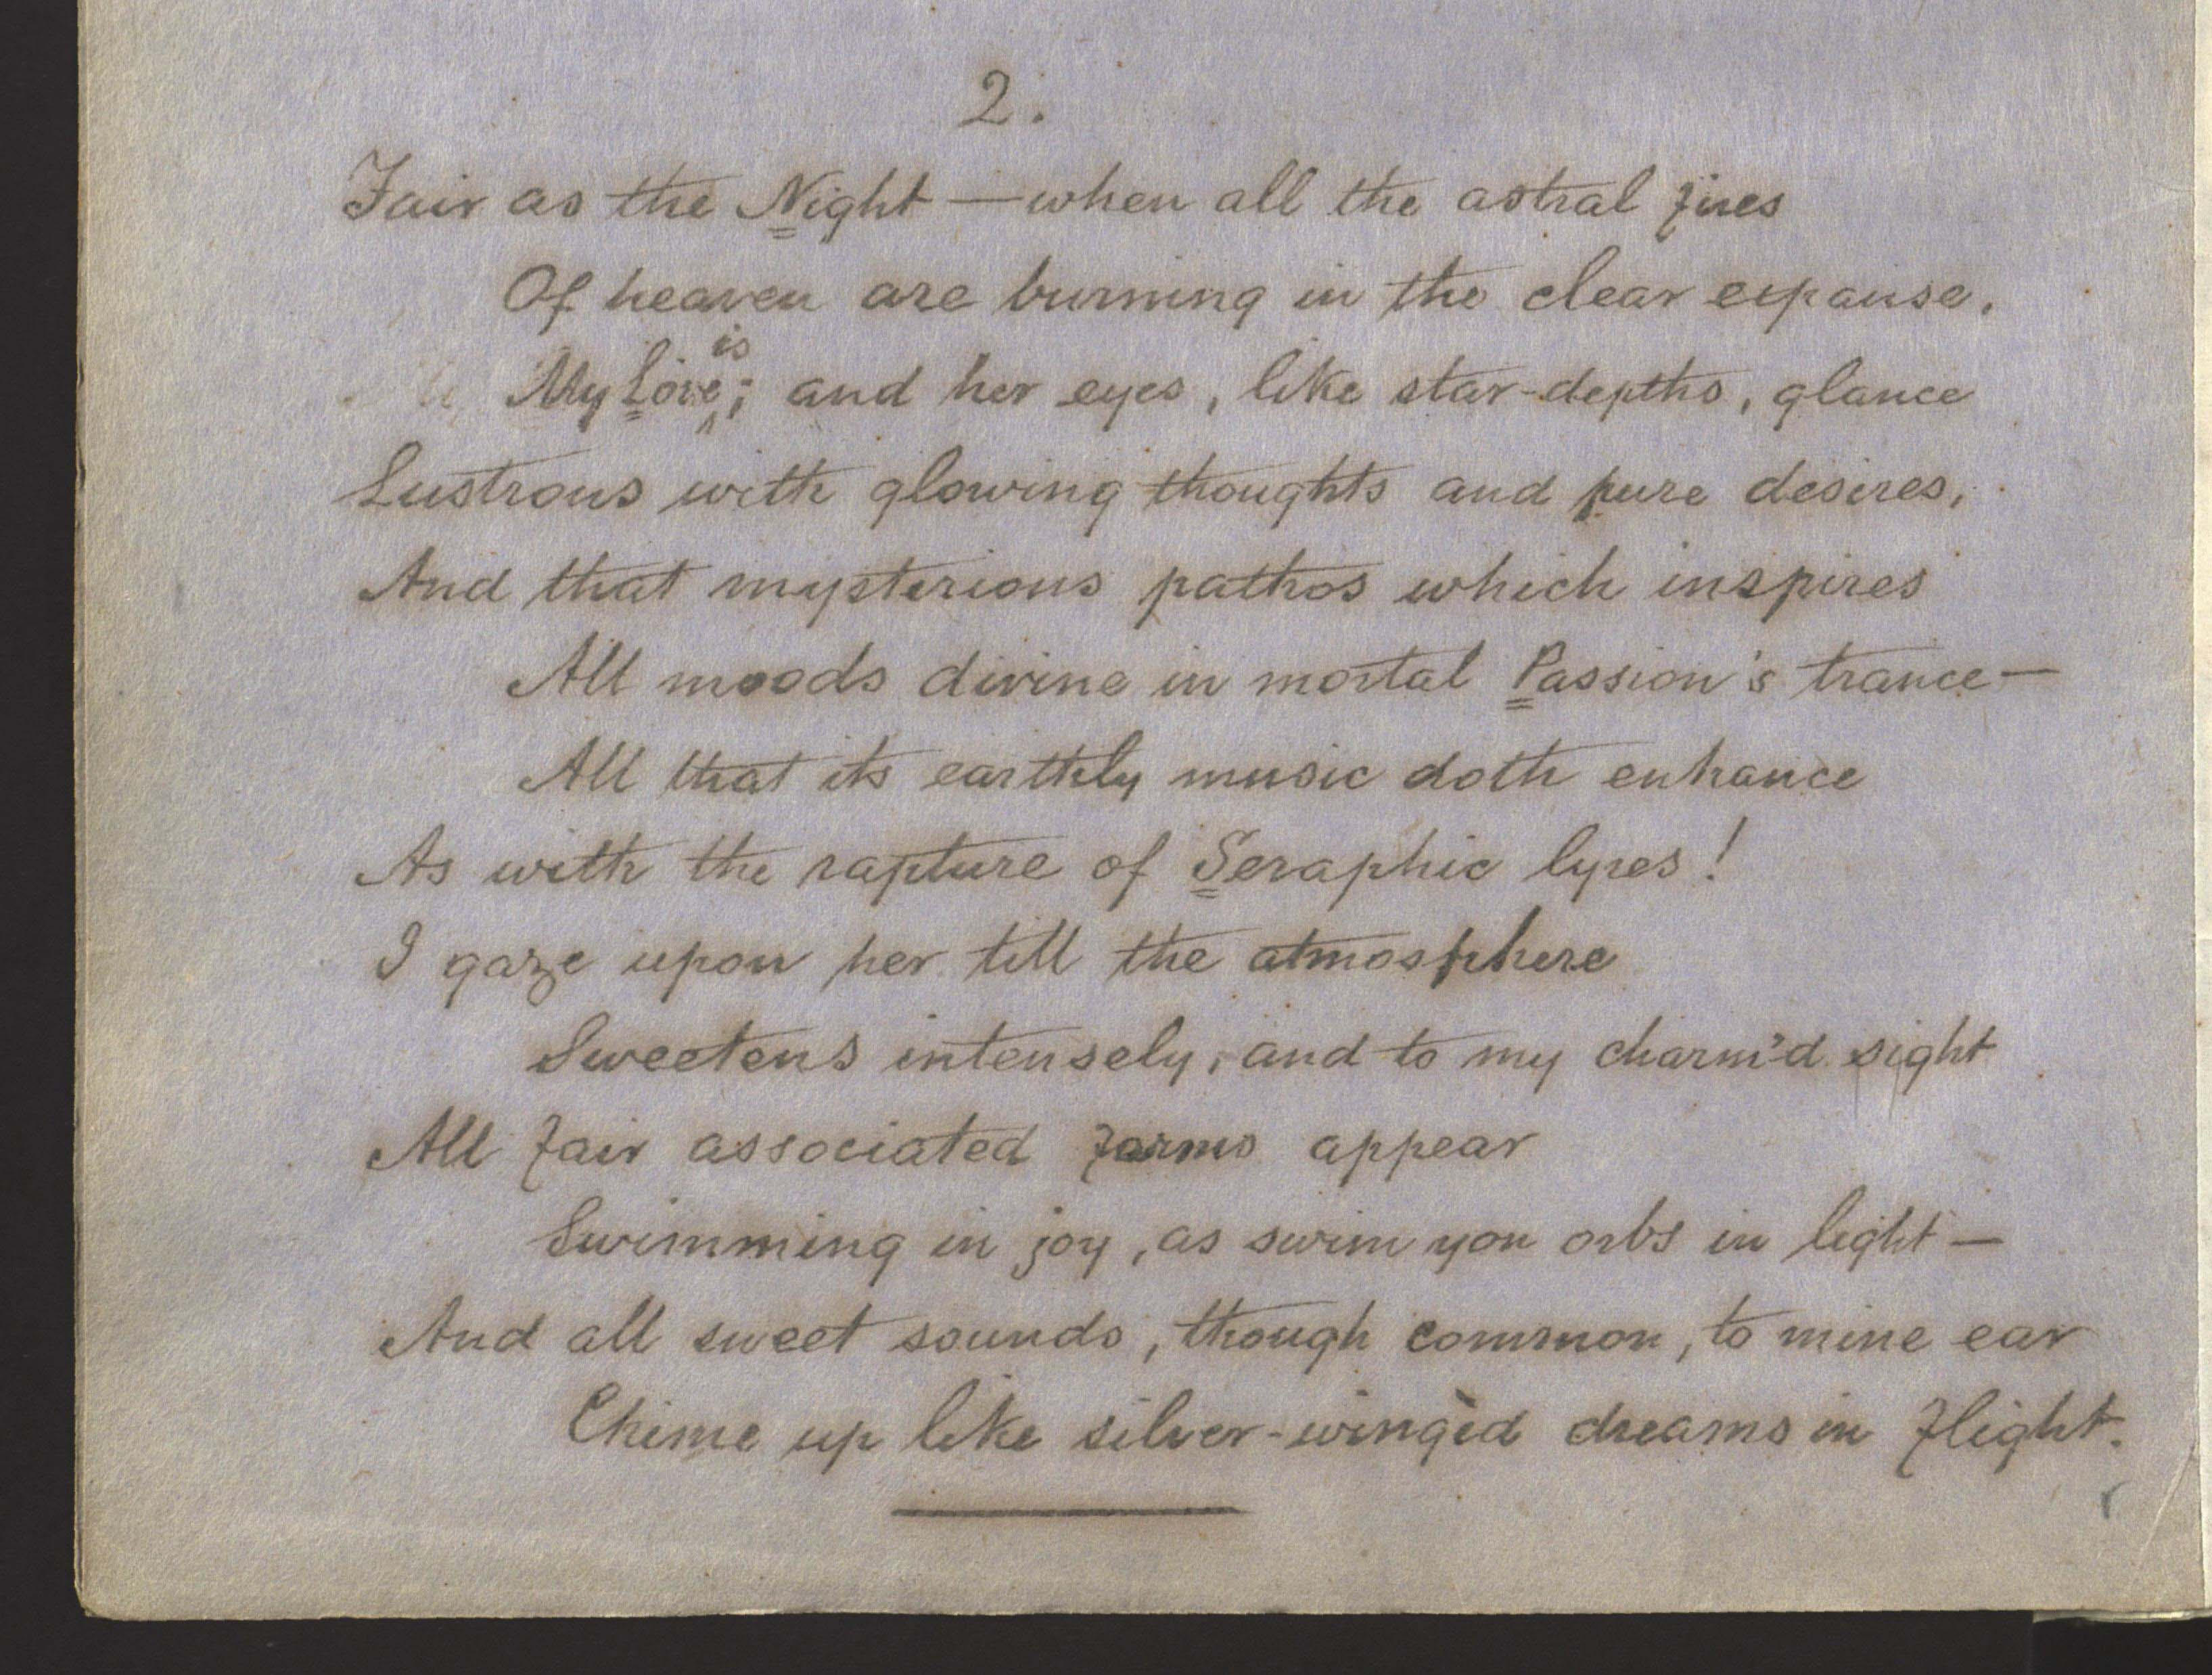 2.
Fair as the Night — when all the astral fires
Of heaven are burning in the clear expanse,
My Love is; and her eyes, like star-depths, glance
Lustrous with glowing thoughts and pure desires,
And that mysterious pathos which inspires
All moods divine in mortal Passion's trance —
All that its earthly music doth enhance
As with the rapture of Seraphic lyres!
I gaze upon her till the atmosphere
Sweetens intensely, and to my charm'd sight
All fair associated forms appear
Swimming in joy, as swim yon orbs in light —
And all sweet sounds, though common, to mine ear
Chime up like silver-wingèd dreams in flight.